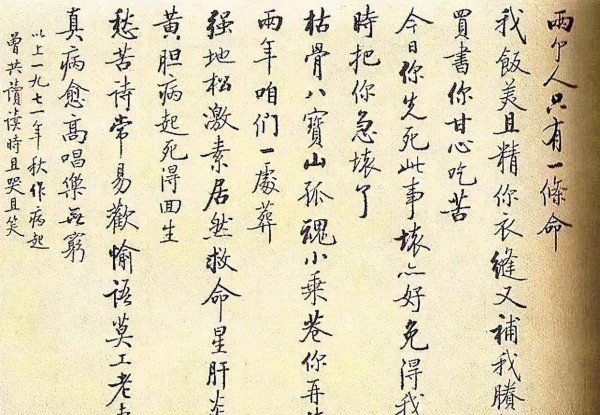 兩个人只有一條命
我飯美且精你衣縫又補我賸
買書你甘心吃苦
今日你先死此事壞亦好免得我
時把你急壞了
枯骨八寶山孤魂小乘巷你再
兩年咱们一處葬
强地松激素居然救命星肝炎
黄胆病起死得回生
愁苦诗常易歡愉语莫工老
真病愈高唱樂無窮
以上一九七一年秋作病起
曾共讀讀時且哭且笑